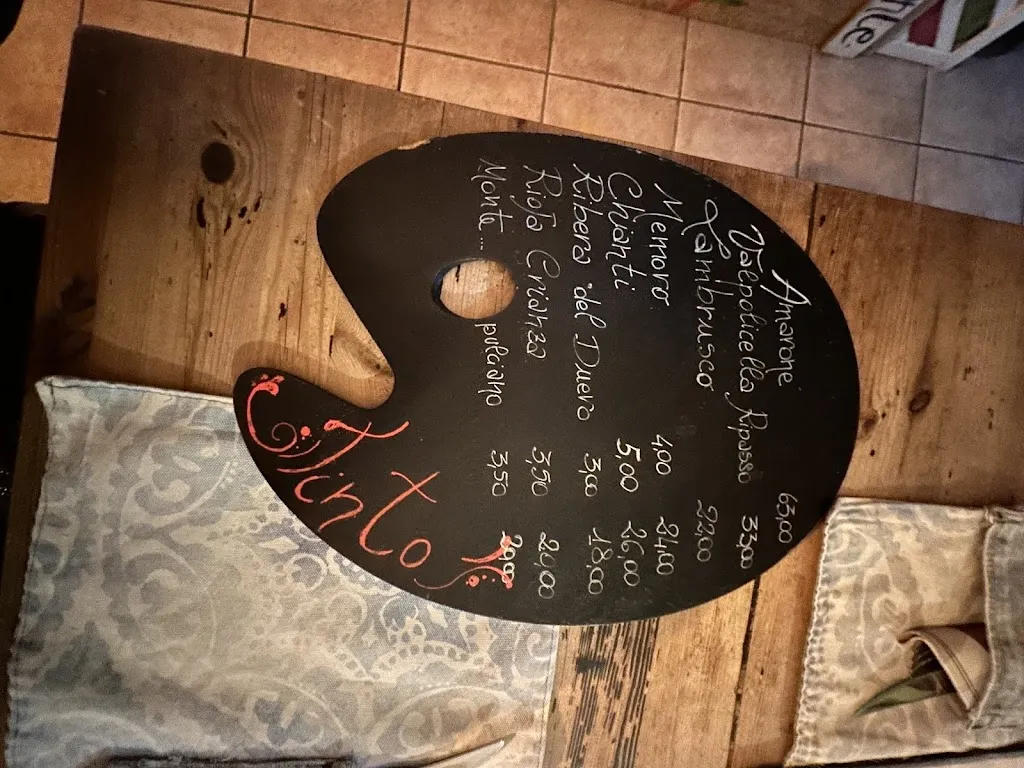 Amarone 63,00
Valpolicella Ripasso 33,00
Lambrusco 22,00
Memoro 4,00 21,00
Chianti 5,00 26,00
Ribera del Duero 3,00 18,00
Rioja Crianza 3,50 20,00
Monte... pulciano 3,50 20,00
Tinto